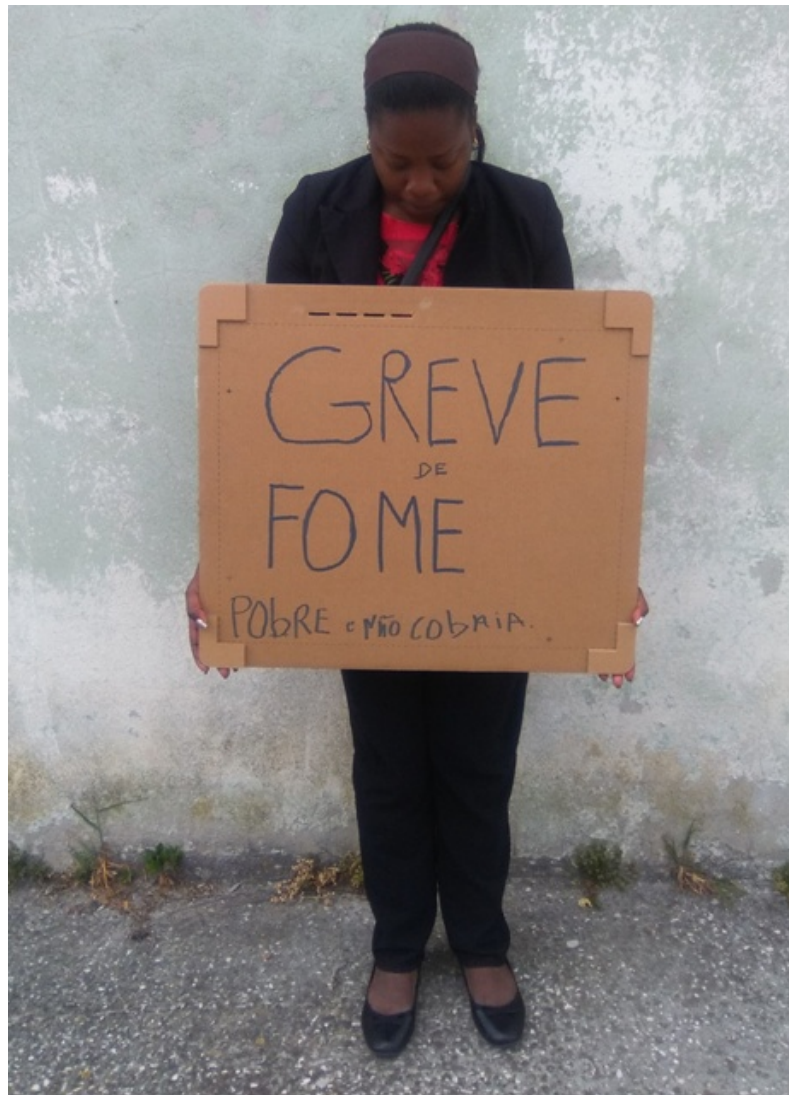 GREVE
DE
FOME
PObRE e NÃO CObAiA.